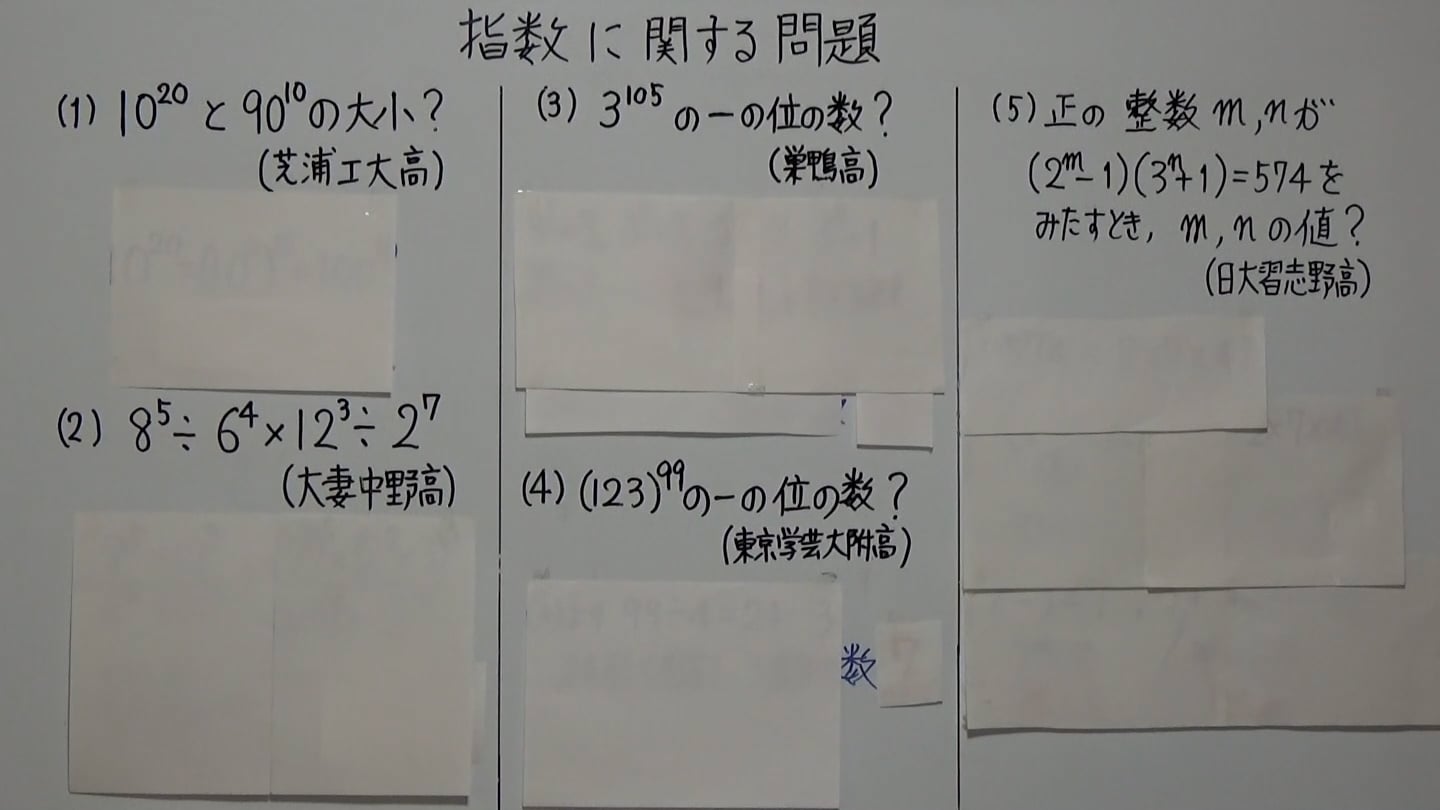 指数に関する問題
(1) 10²⁰ と 90¹⁰の大小?
(芝浦工大高)
(2) 8⁵÷6⁴×12³÷2⁷
(大妻中野高)
(3) 3¹⁰⁵の一の位の数?
(巣鴨高)
(4) (123)⁹⁹の一の位の数?
(東京学芸大附高)
数 7
(5) 正の整数 m,nが
(2ᵐ-1)(3ⁿ+1)=574を
みたすとき, m,nの値?
(日大習志野高)